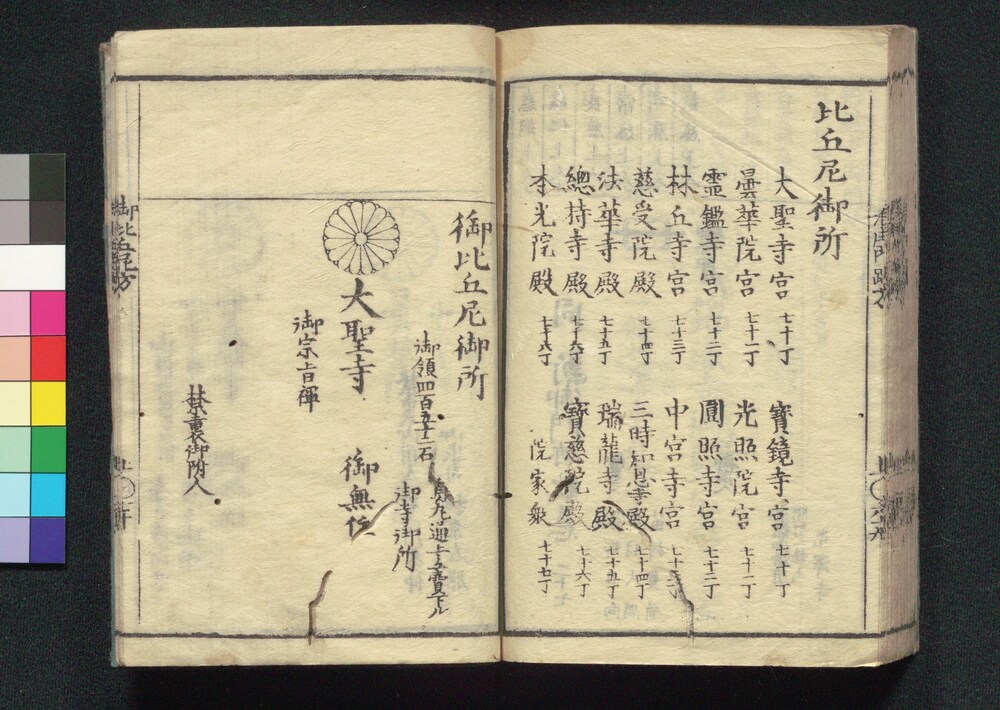 比丘尼御所
大聖寺宮 七十丁 寶鏡寺宮 七十丁
曇華院宮 七十一丁 光照院宮 七十一丁
霊鑑寺宮 七十二丁 圓照寺宮 七十二丁
林丘寺宮 七十三丁 中宮寺宮 七十三丁
慈受院殿 七十四丁 三時知恩寺殿 七十四丁
法華寺殿 七十五丁 瑞龍寺殿
總持寺殿 七十六丁 寶慈院殿 七十六丁
本光院殿 七十八丁 院家衆 七十七丁
御比丘尼御所
御領四百五十二石
烏丸通上立賣下ル
御寺御所
大聖寺 御無住
御宗旨禅
禁裏御附人
御比丘尼方